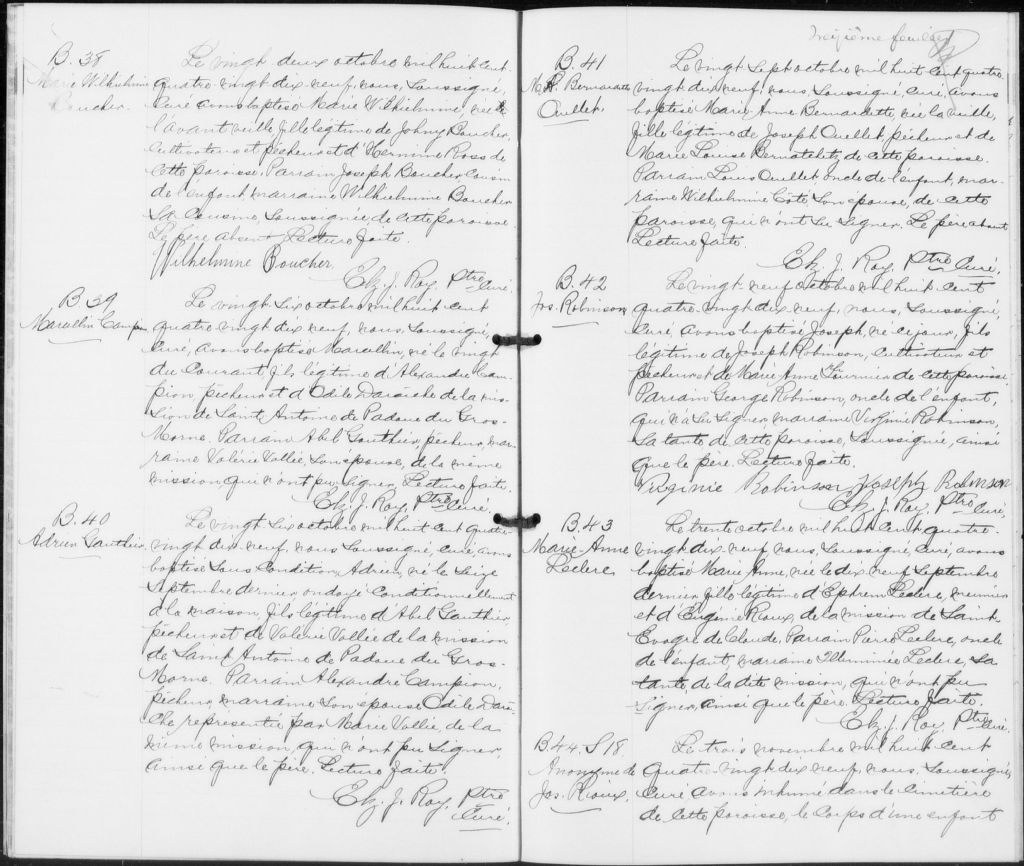 B. 38
Marie Wilhielmine
Boucher.
Le vingt deux octobre mil huit cent
quatre vingt dix neuf, nous, soussigné,
curé avons baptisé Marie Wilhielmine, née
l'avant veille, fille légitime de Johny Boucher,
cultivateur et pêcheur et d'Hermine Ross de
cette paroisse. Parrain Joseph Boucher cousin
de l'enfant, marraine Wilhielmine Boucher
sa cousine, soussignée de cette paroisse
Le père absent. Lecture faite.
Wilhelmine Boucher
Elz. J. Roy, Ptre Curé.
B 39
Marcellin Campion
Le vingt six octobre mil huit cent
quatre vingt dix neuf, nous, soussigné,
curé, avons baptisé Marcellin, né le vingt
du courant, fils légitime d'Alexandre Cam-
pion, pêcheur et d'Odile Daraiche de la mis-
sion de Saint Antoine de Padoue du Gros-
Morne. Parrain Abel Gauthier, pêcheur, mar-
raine Valérie Vallée, son épouse, de la même
mission, qui n'ont pu signer. Lecture faite.
Elz. J. Roy, Ptre Curé.
B. 40
Adrien Gauthier
Le vingt six octobre mil huit cent quatre
vingt dix neuf, nous soussigné, curé, avons
baptisé sous condition, Adrien, né le seize
septembre dernier, ondoyé conditionnellement
à la maison, fils légitime d'Abel Gauthier,
pêcheur et de Valérie Vallée de la mission
de Saint Antoine de Padoue du Gros-
Morne. Parrain Alexandre Campion,
pêcheur, marraine son épouse Odile Darai-
che représentée par Marie Vallée, de la
même mission, qui n'ont pu signer,
ainsi que le père. Lecture faite.
Elz. J. Roy, Ptre
Curé.
Treizième feuillet
B. 41
M. A. Bernadette
Ouellet.
Le vingt sept octobre mil huit cent quatre
vingt dix neuf, nous, soussigné, curé, avons
baptisé Marie Anne Bernardette, née la veille,
fille légitime de Joseph Ouellet pêcheur et de
Marie Louise Bernatchetz, de cette paroisse.
Parrain Louis Ouellet, oncle de l'enfant, mar-
raine Wilhielmine Côté son épouse, de cette
paroisse, qui n'ont su signer. Le père absent
Lecture faite.
Elz. J. Roy, Ptre Curé.
B. 42
Jos. Robinson
Le vingt neuf octobre mil huit cent
quatre vingt dix neuf, nous, soussigné,
curé avons baptisé Joseph, né ce jour, fils
légitime de Joseph Robinson, cultivateur et
pêcheur et de Marie Anne Fournier de cette paroisse
Parrain George Robinson, oncle de l'enfant,
qui n'a su signer, marraine Virginie Robinson,
sa tante de cette paroisse, soussignée, ainsi
que le père. Lecture faite.
Virginie Robinson Joseph Robinson
Elz. J. Roy, Ptre Curé,
B. 43
Marie-Anne
Leclerc
Le trente octobre mil huit cent quatre-
vingt dix neuf, nous, soussigné, curé, avons
baptisé Marie Anne, née le dix neuf septembre
dernier, fille légitime d'Ephrem Leclerc, meunier
et d'Eugénie Rioux, de la mission de Saint
Evagre de Claude, Parrain Pierre Leclerc, oncle
de l'enfant, marraine Illuminée Leclerc, sa
tante de la dite mission, qui n'ont pu
signer, ainsi que le père. Lecture faite.
Elz. J. Roy, Ptre Curé.
B 44. S 18
Anonyme de
Jos. Rioux.
Le trois novembre mil huit cent
quatre-vingt dix neuf, nous, soussigné,
curé, avons inhumé dans le cimetière
de cette paroisse, le corps d'une enfant